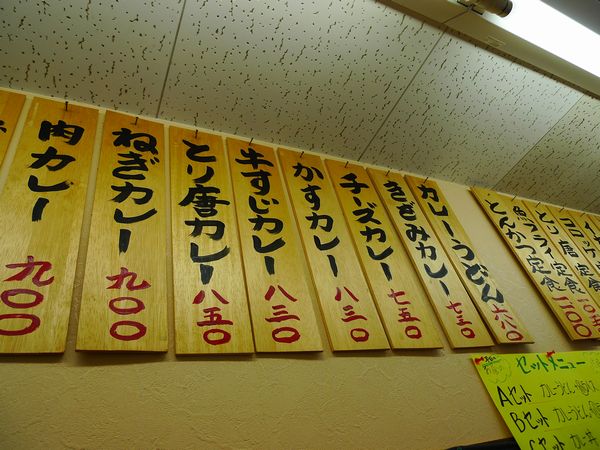 肉カレー 九〇〇
ねぎカレー 九〇〇
とり唐カレー 八五〇
牛すじカレー 八三〇
かすカレー 八三〇
チーズカレー 七五〇
きざみカレー 七三〇
カレーうどん 六八〇
とんかつ定食 一一〇〇
魚フライ定食
とり唐定食
コロッケ定食
セットメニュー
Aセット カレーうどん
Bセット カレーうどん
Cセット カレー丼